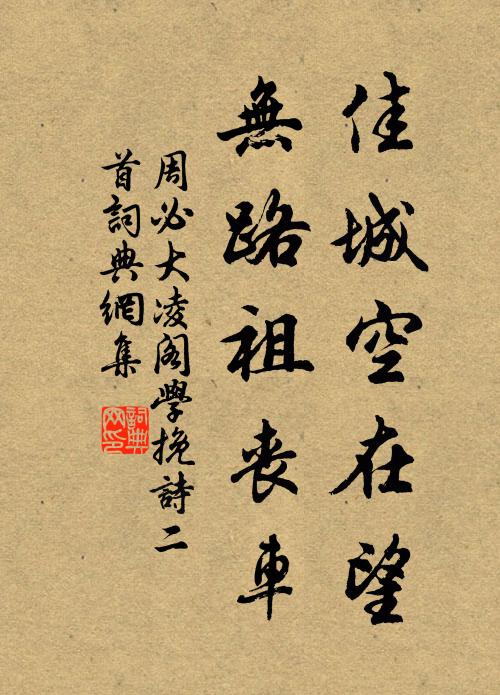 佳城空在望
無路祖喪車
周必大凌閣學挽詩二
首詞典網集
詞典网印